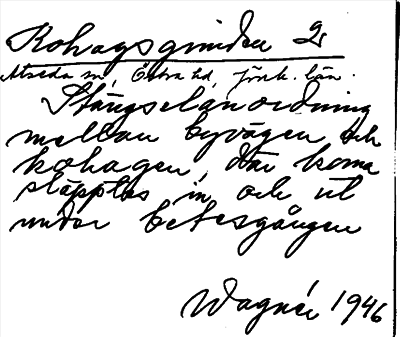 Kohagsgrinden 2
Alseda sn, Östra hd, Jönk. län.
Stängselanordning
mellan byvägen och
kohagen, där korna
släpptes in och ut
under betesgången
Wagnér 1946